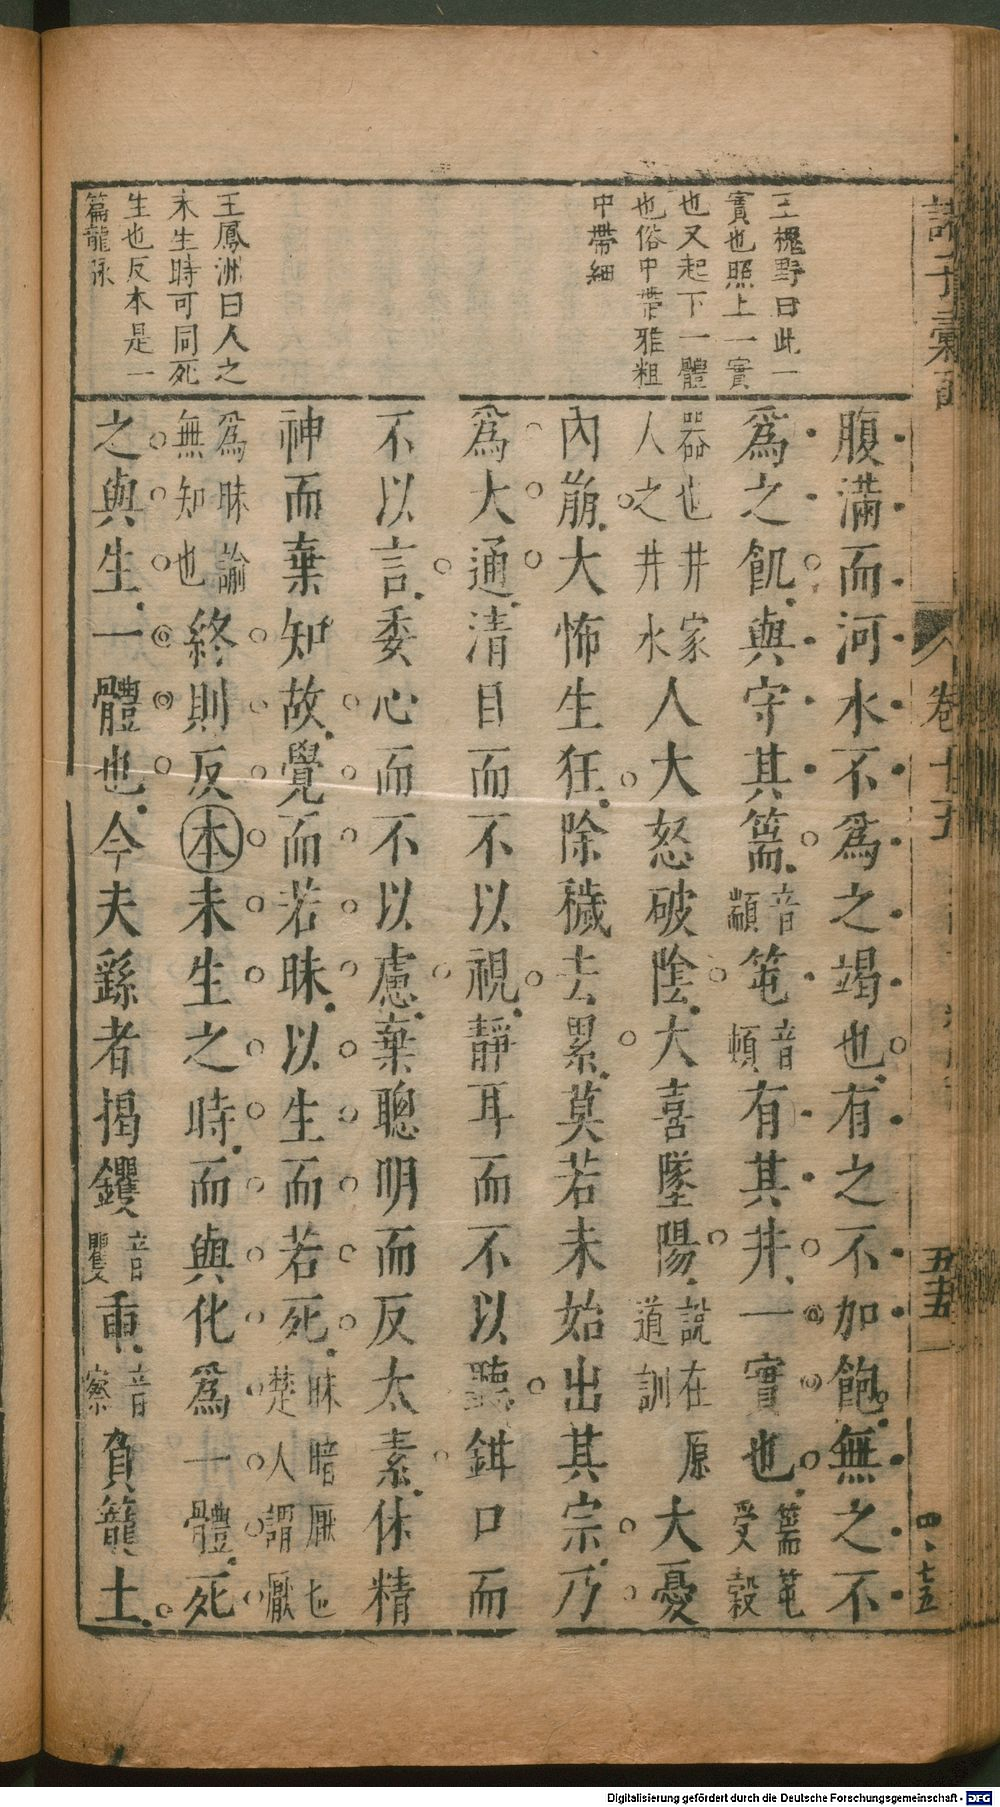 王槐野曰此一
實也照上一實
也又起下一體
也俗中帶雅粗
中帶細
王鳳洲曰人之
未生時可同死
生也反本是一
篇龍脉
腹滿而河水不爲之竭也有之不加飽無之不
爲之飢與守其篅音顓笔音頓有其井一實也篅笔受穀
器也井家人之井水人大怒破陰大喜墜陽說在原道訓大憂
內崩大怖生狂除穢去累莫若未始出其宗乃
爲大通清目而不以視靜耳而不以聽鉗口而
不以言委心而不以慮棄聰明而反太素休精
神而棄知故覺而若昧以生而若死昧暗厭也楚人謂厭
爲昧諭無知也終則反本未生之時而與化爲一體死
之與生一體也今夫繇者揭钁音矍臿音察負籠土
卷十五
五十五
四七五
Digitalisierung gefördert durch die Deutsche Forschungsgemeinschaft - DFG